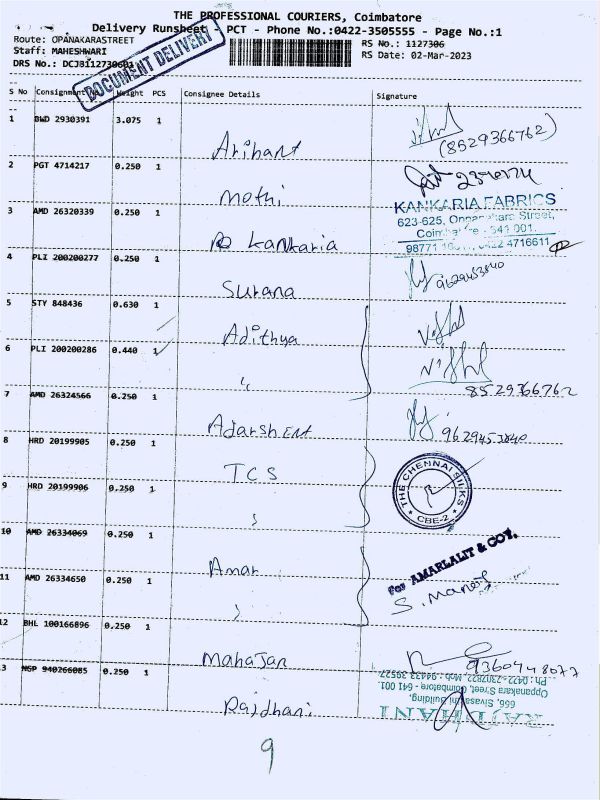 THE PROFESSIONAL COURIERS, Coimbatore
Delivery Runsheet - PCT - Phone No.:0422-3505555 - Page No.:1
Route: OPANAKARASTREET
RS No.: 1127306
Staff: MAHESHWARI
RS Date: 02-Mar-2023
DRS No.: DCJ8112730601
DOCUMENT DELIVERY
S No Consignment No Weight PCS Consignee Details Signature
1 BWD 2930391 3.075 1
Arihant (8529366762)
2 PGT 4714217 0.250 1
Mothi
3 AMD 26320339 0.250 1
Kankaria
KANKARIA FABRICS
623-625, Oppanakara Street,
Coimbatore - 641 001.
4716611
4 PLI 200200277 0.250 1
Surana 9629453840
5 STY 848436 0.630 1
Adithya
6 PLI 200200286 0.440 1
"
8529366762
7 AMD 26324566 0.250 1
Adarsh Ent 9629453840
8 HRD 20199905 0.250 1
TCS
THE CHENNAI SILKS
CBE-2
9 HRD 20199906 0.250 1
"
10 AMD 26334069 0.250 1
Amar
For AMARLALIT & COY.
S. Manoj
11 AMD 26334650 0.250 1
"
12 BHL 100166896 0.250 1
Mahajan 9360448077
13 NGP 940266085 0.250 1
Rajdhani
RAJDHANI
Oppanakara Street, Coimbatore - 641 001.
9